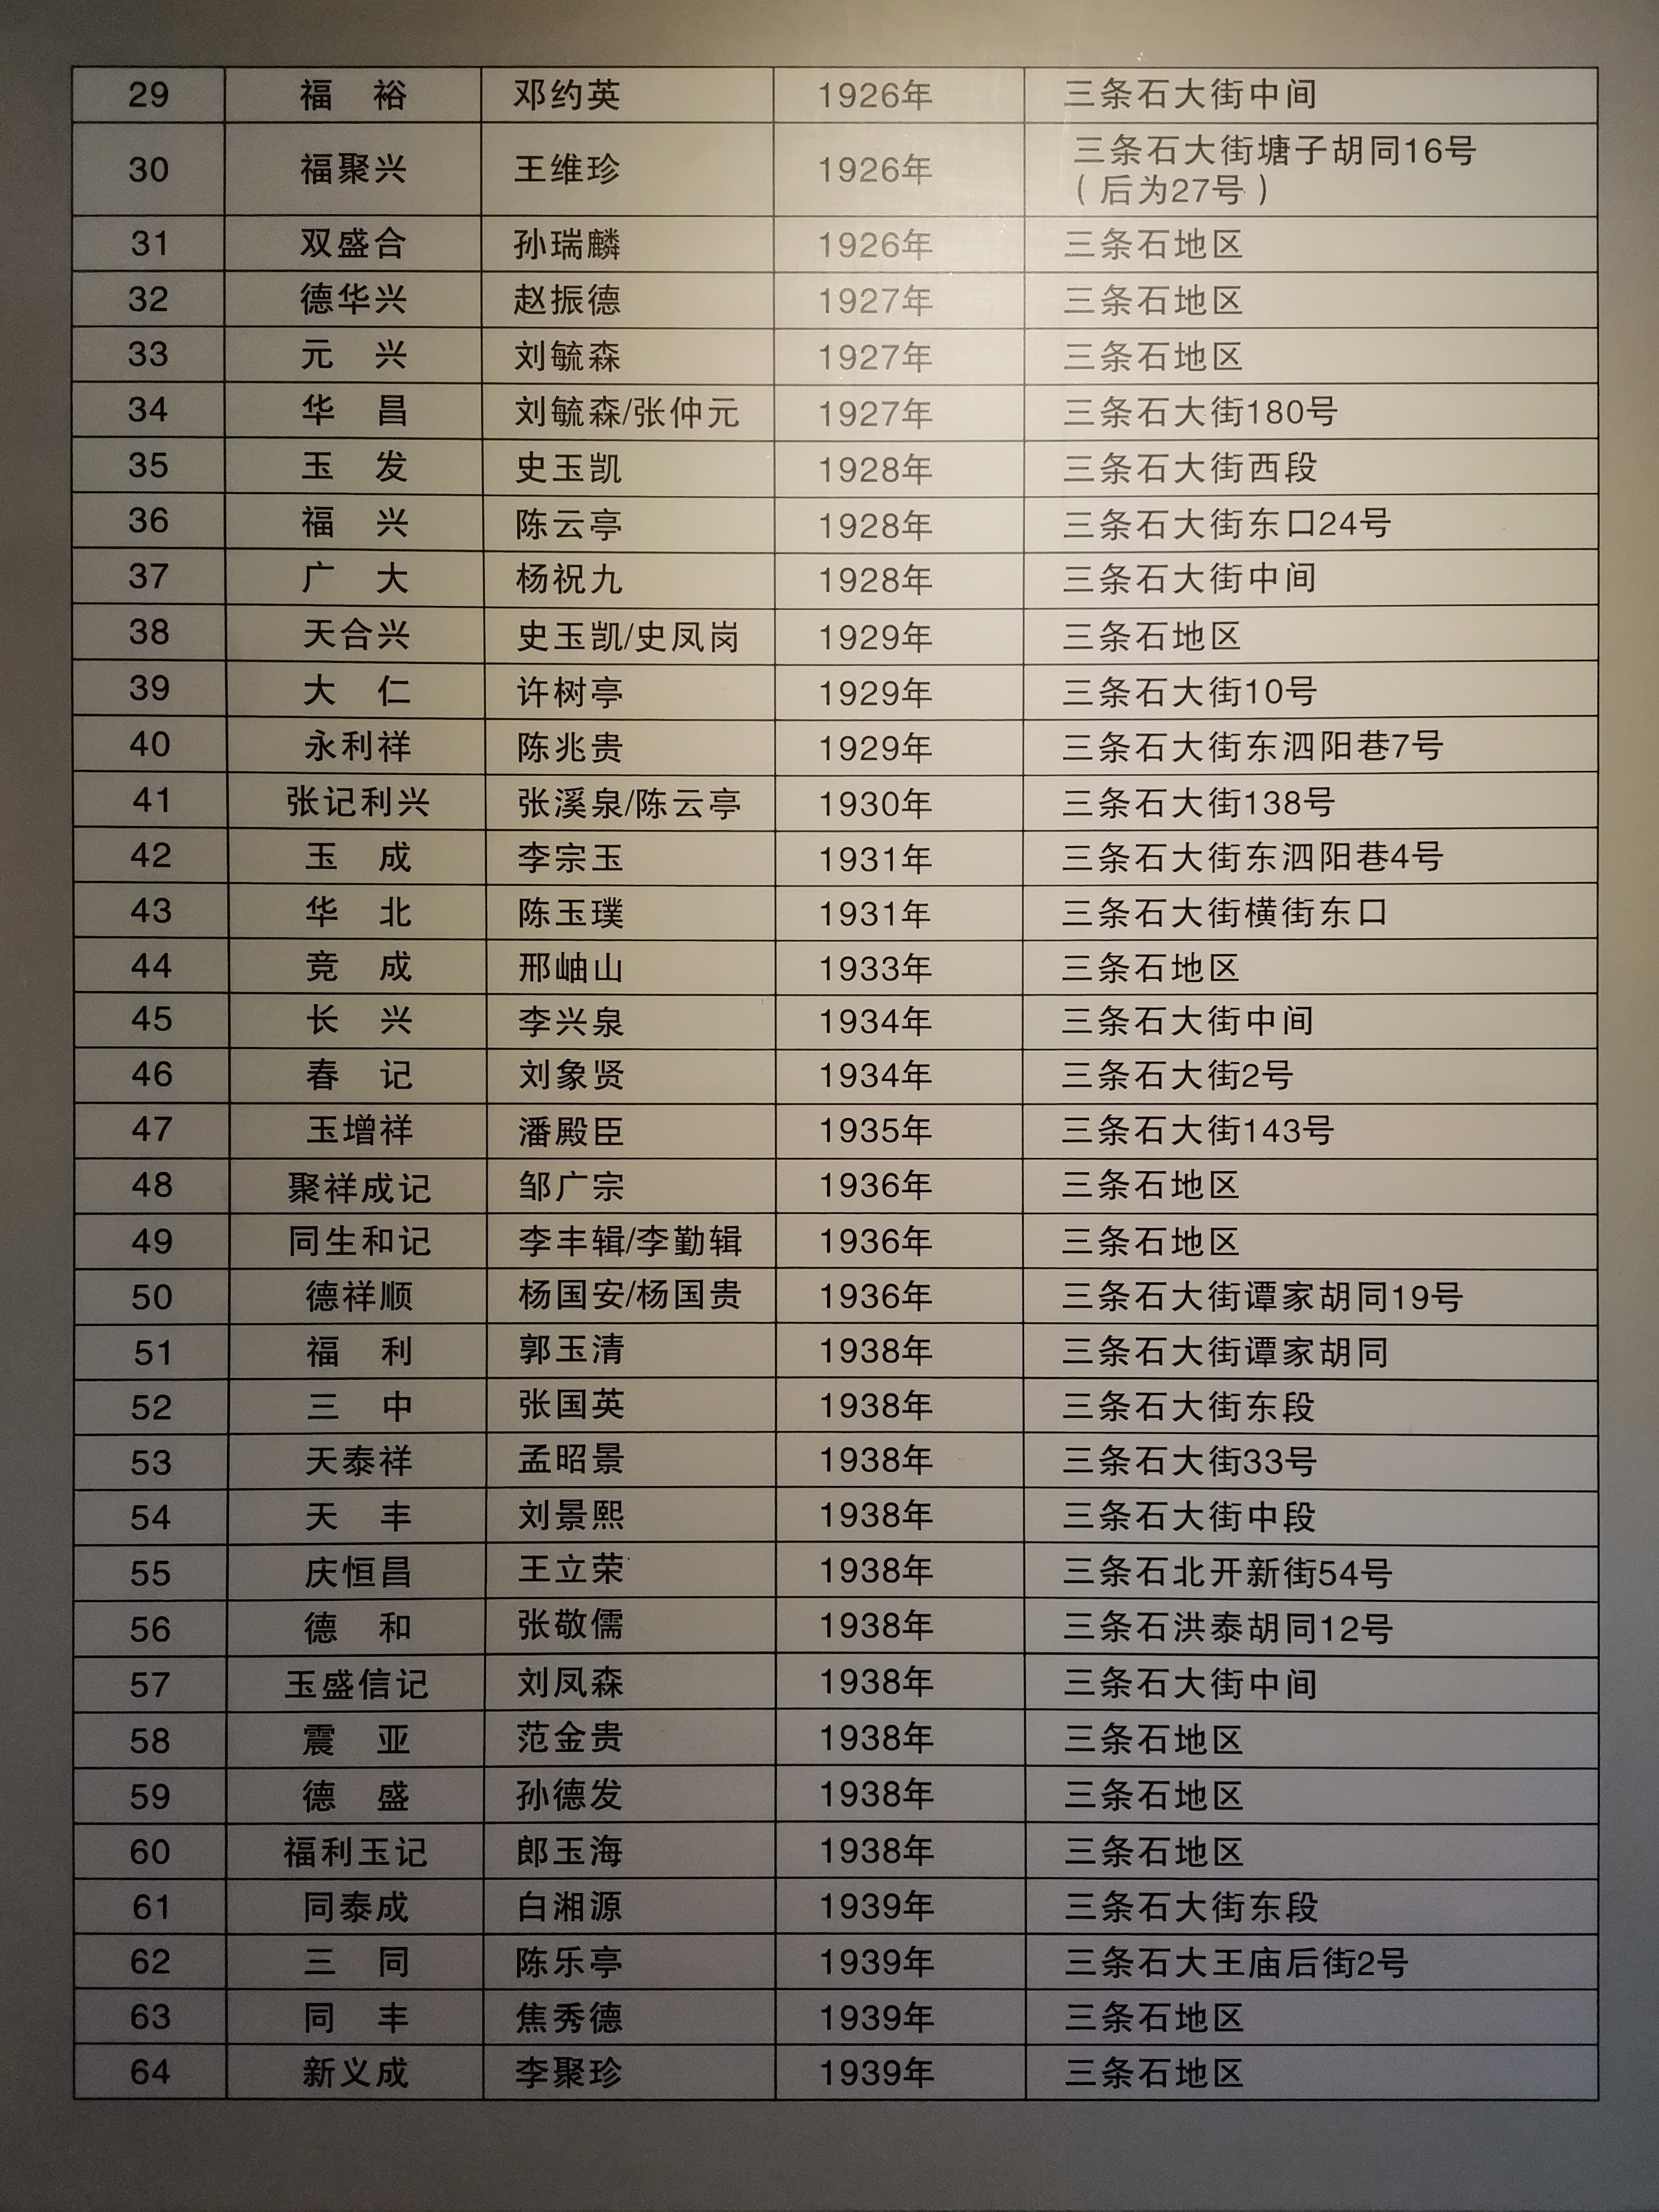 29 福 裕 邓约英 1926年 三条石大街中间
30 福聚兴 王维珍 1926年 三条石大街塘子胡同16号
（后为27号）
31 双盛合 孙瑞麟 1926年 三条石地区
32 德华兴 赵振德 1927年 三条石地区
33 元 兴 刘毓森 1927年 三条石地区
34 华 昌 刘毓森/张仲元 1927年 三条石大街180号
35 玉 发 史玉凯 1928年 三条石大街西段
36 福 兴 陈云亭 1928年 三条石大街东口24号
37 广 大 杨祝九 1928年 三条石大街中间
38 天合兴 史玉凯/史凤岗 1929年 三条石地区
39 大 仁 许树亭 1929年 三条石大街10号
40 永利祥 陈兆贵 1929年 三条石大街东泗阳巷7号
41 张记利兴 张溪泉/陈云亭 1930年 三条石大街138号
42 玉 成 李宗玉 1931年 三条石大街东泗阳巷4号
43 华 北 陈玉璞 1931年 三条石大街横街东口
44 竞 成 邢岫山 1933年 三条石地区
45 长 兴 李兴泉 1934年 三条石大街中间
46 春 记 刘象贤 1934年 三条石大街2号
47 玉增祥 潘殿臣 1935年 三条石大街143号
48 聚祥成记 邹广宗 1936年 三条石地区
49 同生和记 李丰辑/李勤辑 1936年 三条石地区
50 德祥顺 杨国安/杨国贵 1936年 三条石大街谭家胡同19号
51 福 利 郭玉清 1938年 三条石大街谭家胡同
52 三 中 张国英 1938年 三条石大街东段
53 天泰祥 孟昭景 1938年 三条石大街33号
54 天 丰 刘景熙 1938年 三条石大街中段
55 庆恒昌 王立荣 1938年 三条石北开新街54号
56 德 和 张敬儒 1938年 三条石洪泰胡同12号
57 玉盛信记 刘凤森 1938年 三条石大街中间
58 震 亚 范金贵 1938年 三条石地区
59 德 盛 孙德发 1938年 三条石地区
60 福利玉记 郎玉海 1938年 三条石地区
61 同泰成 白湘源 1939年 三条石大街东段
62 三 同 陈乐亭 1939年 三条石大王庙后街2号
63 同 丰 焦秀德 1939年 三条石地区
64 新义成 李聚珍 1939年 三条石地区